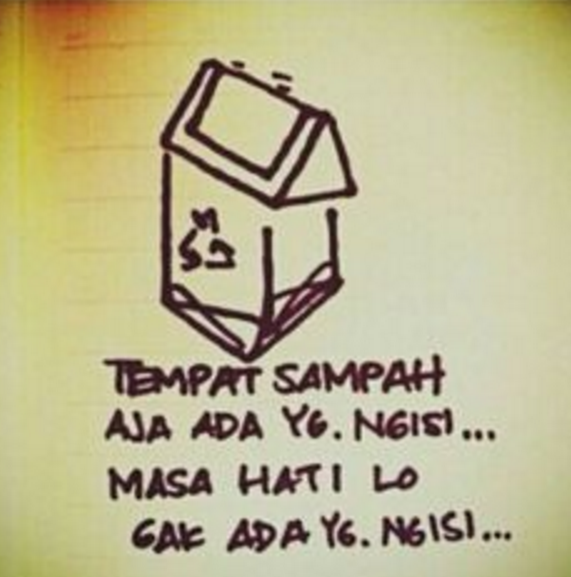 TEMPAT SAMPAH
AJA ADA YG. NGISI...
MASA HATI LO
GAK ADA YG. NGISI...